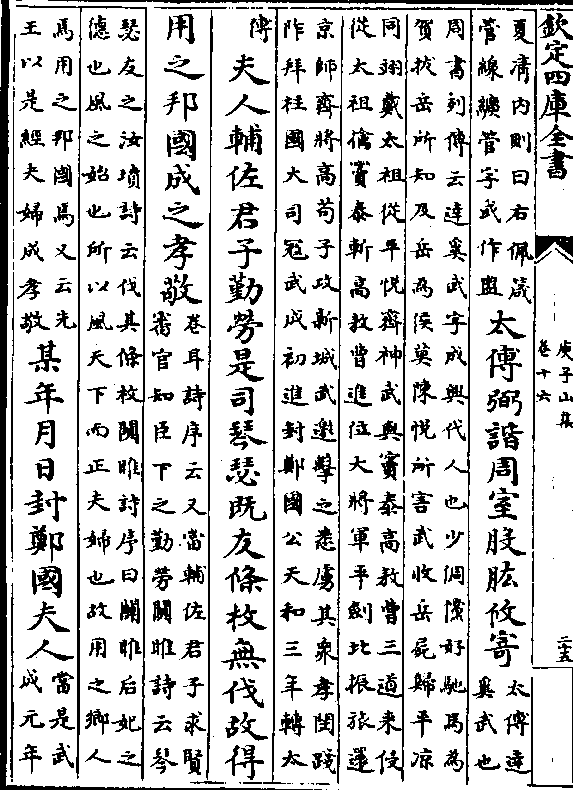 欽定四庫全書
庾子山集
卷十六
二十五
夏凊内則曰右佩箴
管線纊管字或作盥
太傅弼諧周室股肱攸寄
太傅達
奚武也
周書列傳云達奚武字成興代人也少倜儻好馳馬為
賀拔岳所知及岳為侯莫陳悅所害武收岳屍歸平凉
同翊戴太祖從平悅齊神武與竇泰高敖曹三道來侵
從太祖擒竇泰斬高敖曹進位大將軍平劍北振旅還
京師齊將高茍子攻新城武邀擊之悉虜其衆孝閔踐
阼拜柱國大司冦武成初進封鄭國公天和三年轉太
傅
夫人輔佐君子勤勞是司琴瑟既友條枚無伐故得
用之邦國成之孝敬
卷耳詩序云又當輔佐君子求賢
審官知臣下之勤勞關雎詩云琴
瑟友之汝墳詩云伐其條枚關雎詩序曰關雎后妃之
德也風之始也所以風天下而正夫婦也故用之鄉人
焉用之邦國焉又云先
王以是經夫婦成孝敬
某年月日封鄭國夫人
當是武
成元年